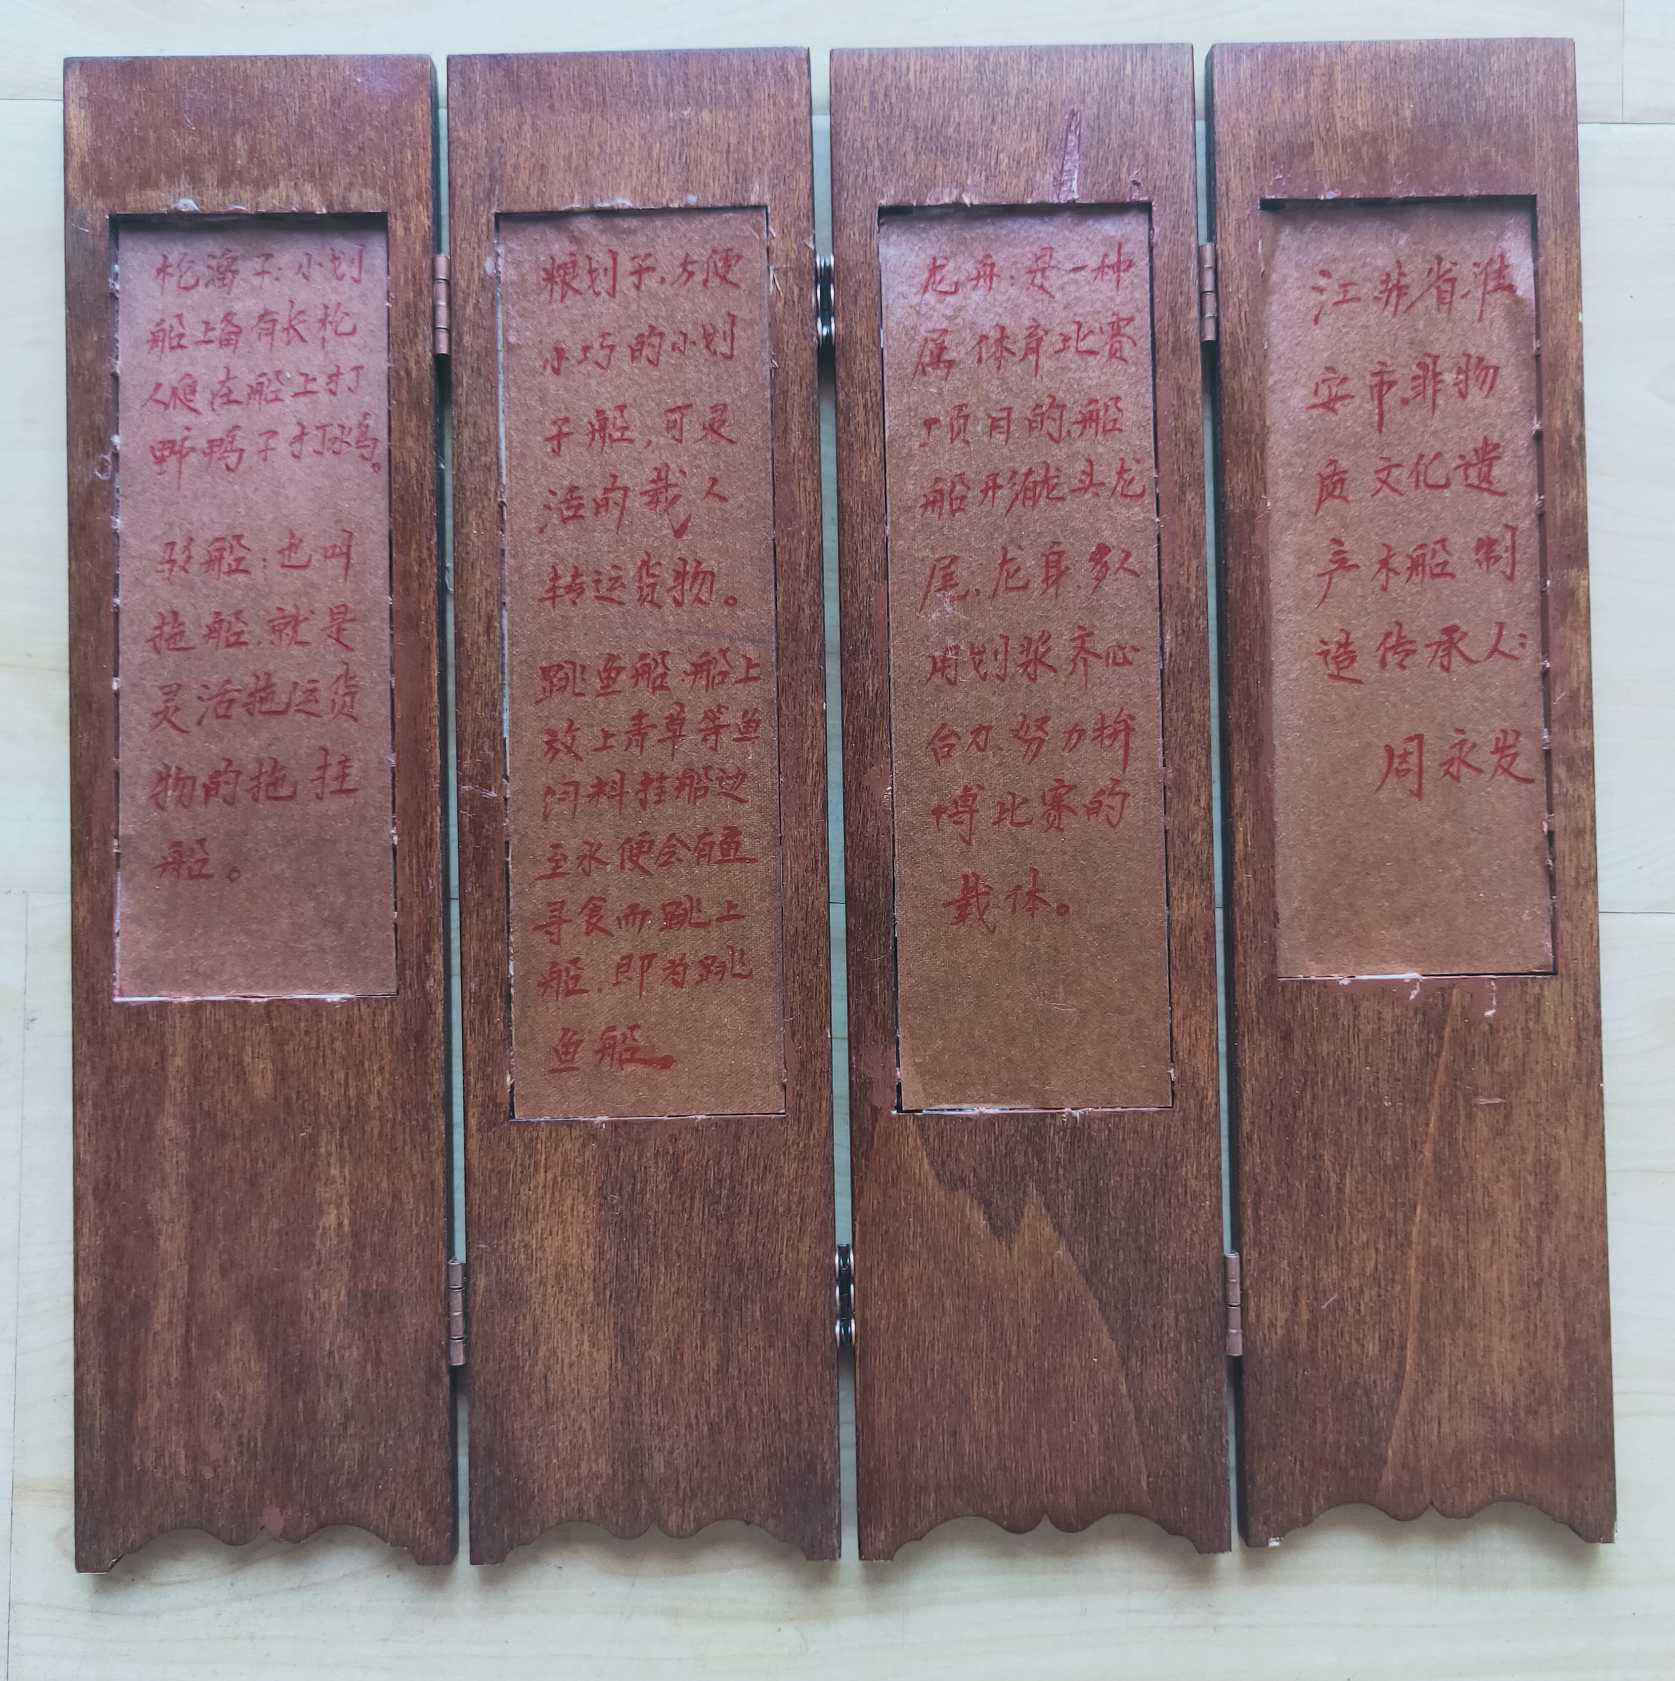 枪溜子：小划
船上备有长枪
人爬在船上打
野鸭子打水鸟。
驳船：也叫
拖船.就是
灵活拖运货
物的拖挂
船。
粮划子.方便
小巧的小划
子船，可灵
活的载人
转运货物。
跳鱼船.船上
放上青草等鱼
饲料挂船边
至水便会有鱼
寻食而跳上
船.即为跳
鱼船。
龙舟：是一种
属体育比赛
项目的.船
船形有龙头龙
尾.龙身.多人
用划浆齐心
合力.努力拚
博比赛的
载体。
江苏省.淮
安市.非物
质文化遗
产木船制
造传承人：
周永发